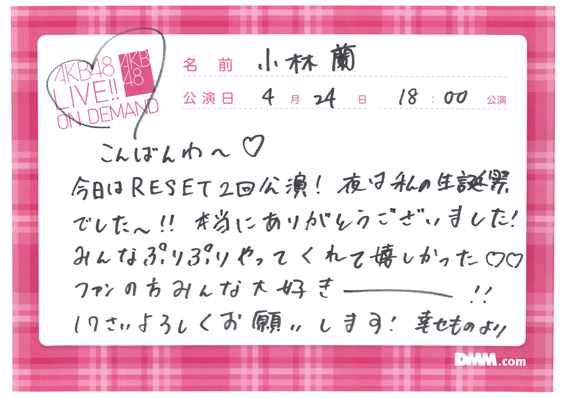 AKB48
LIVE!!
ON DEMAND
AKB
48
名前 小林蘭
公演日 4月24日 18:00公演
こんばんわ〜♡
今日はRESET2回公演！夜は私の生誕祭
でした〜!! 本当にありがとうございました！
みんなぷりぷりやってくれて嬉しかった♡♡
ファンの方みんな大好きーーー!!
17さいよろしくお願いします！幸せものより
DMM.com